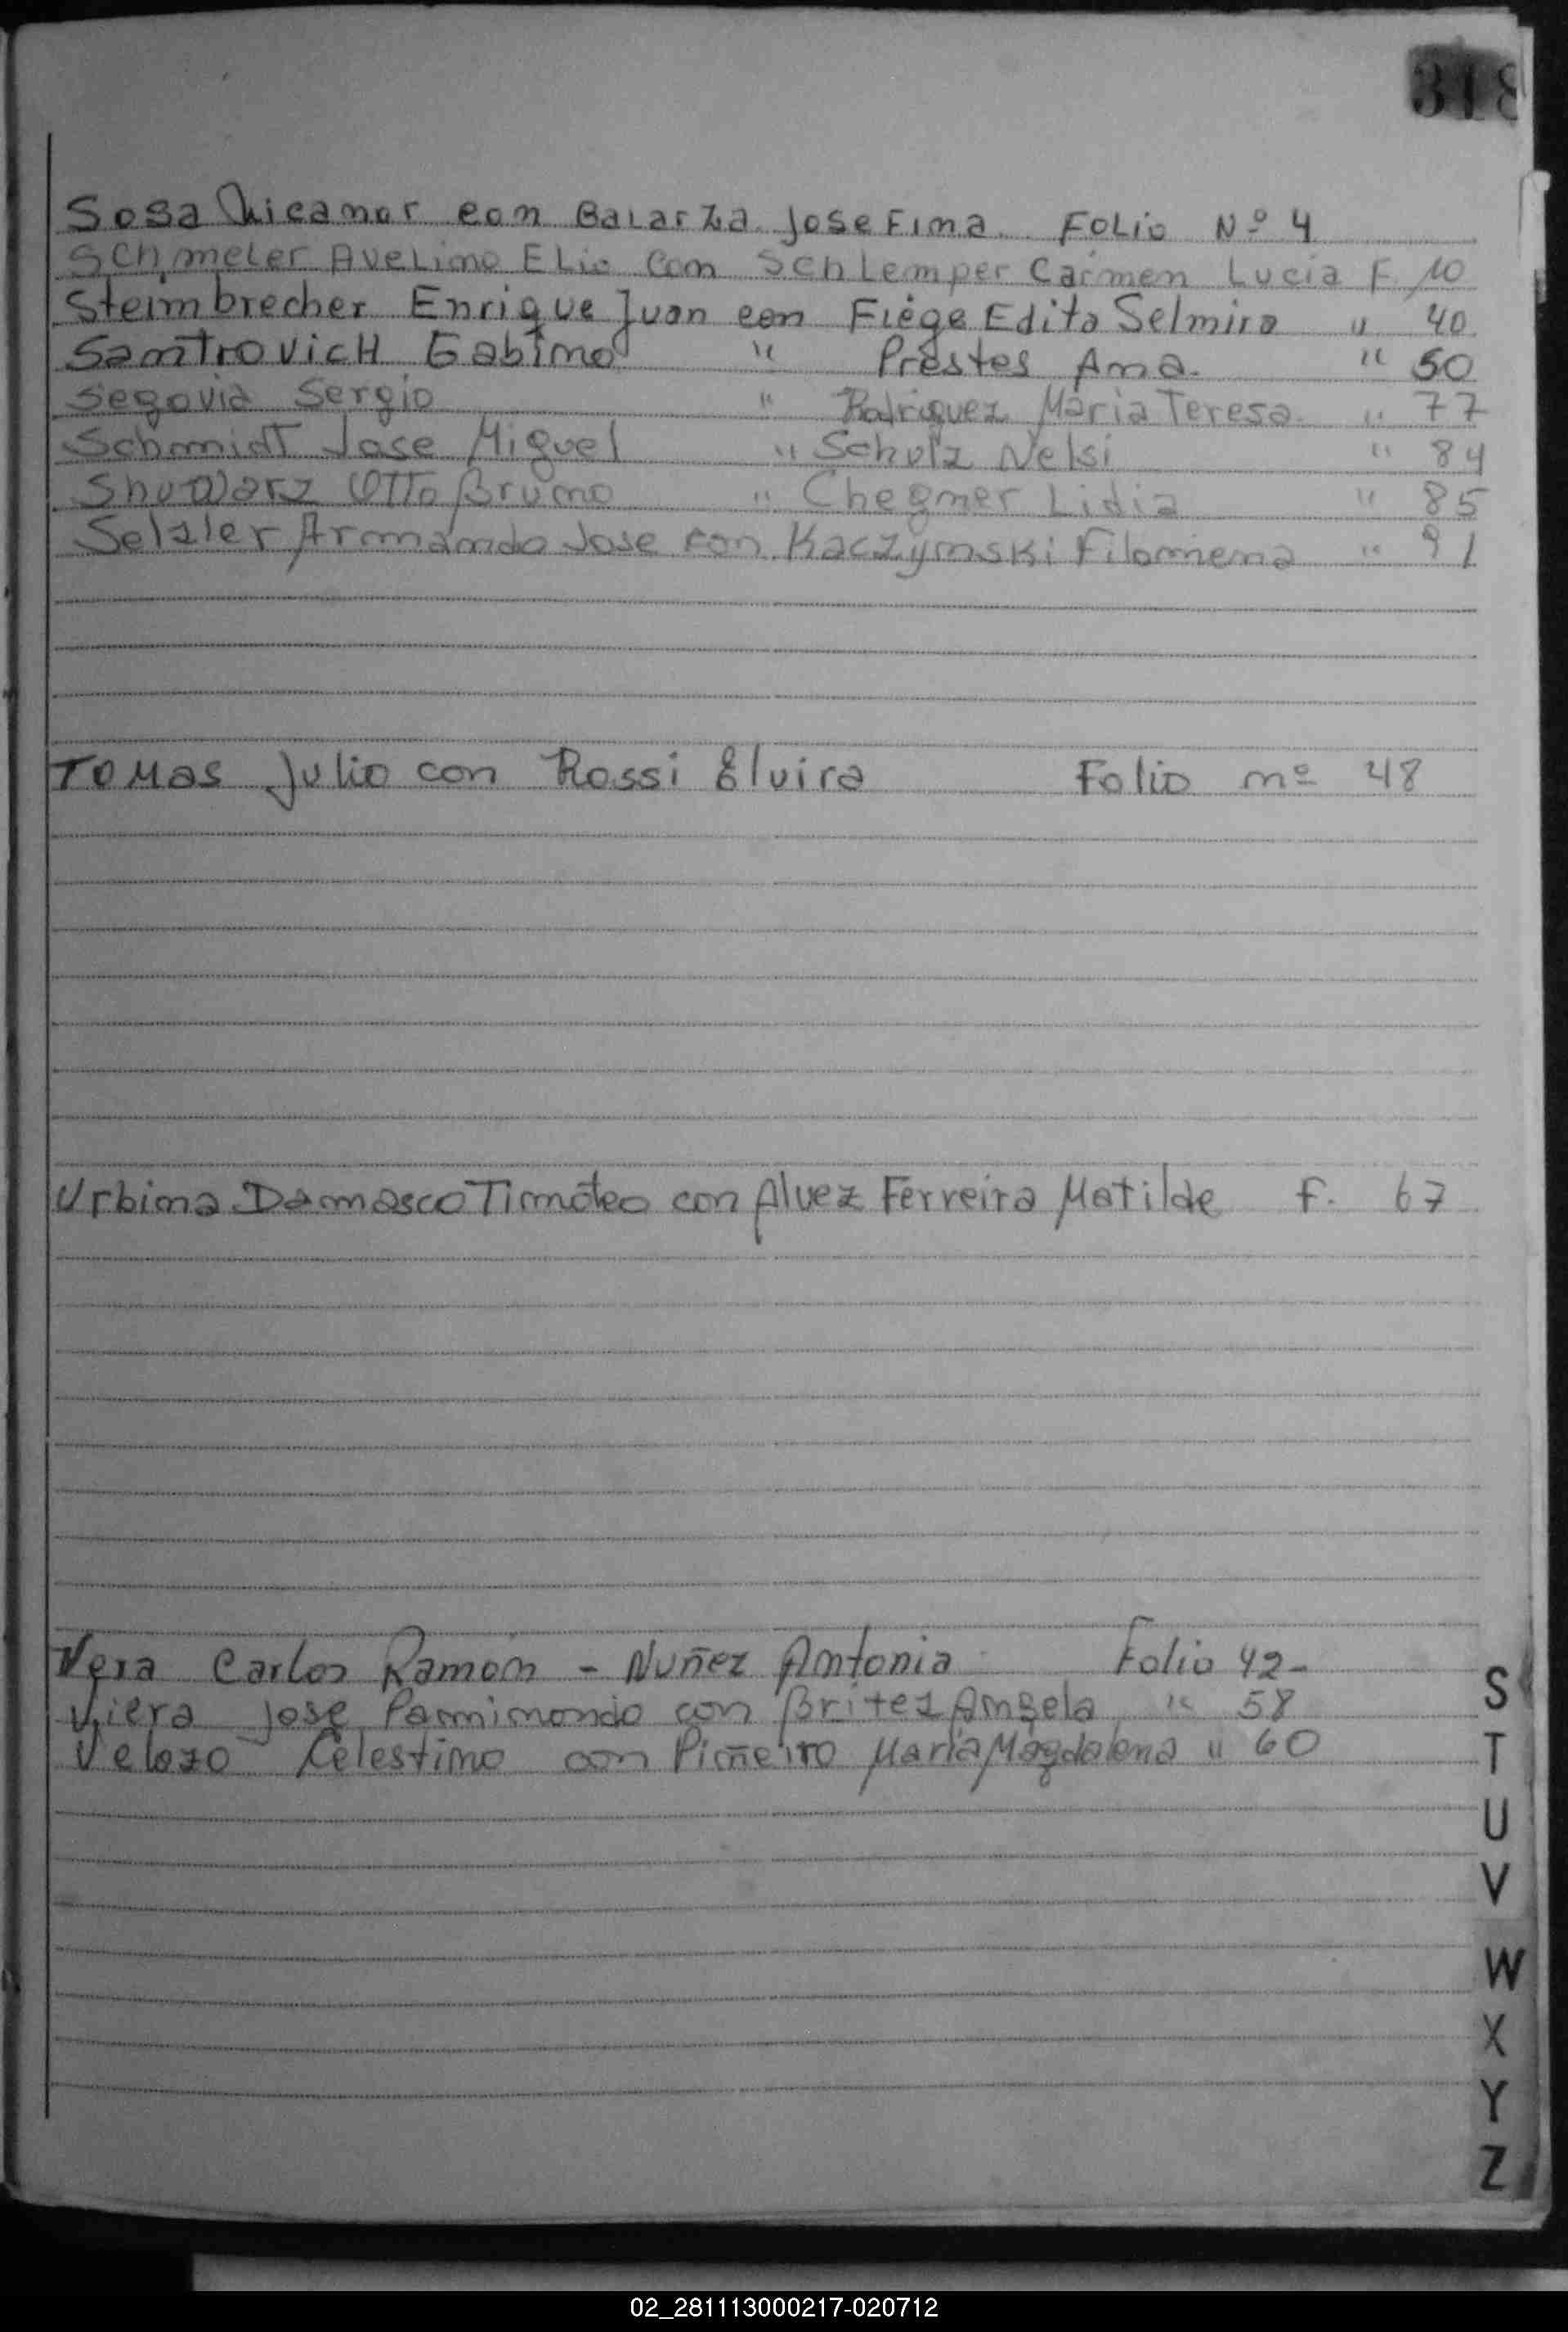 318
Sosa Nicanor con Balarza Josefina. Folio Nº 4
Schmeler Avelino Elio con Schlemper Carmen Lucia F. 10
Steinbrecher Enrique Juan con Fiege Edita Selmira " 40
Santrovich Gabino " Prestes Ana. " 50
Segovia Sergio " Rodriguez Maria Teresa " 77
Schmidt Jose Miguel " Schulz Nelsi " 84
Shuwarz Otto Bruno " Chegner Lidia " 85
Selzler Armando Jose con Kaczynski Filomena " 91
Tomas Julio con Rossi Elvira Folio nº 48
Urbina Damasco Timoteo con Alvez Ferreira Matilde F. 67
Vera Carlos Ramon - Nuñez Antonia Folio 42-
Viera Jose con Britez Angela " 58
Velozo Celestino con Piñeiro Maria Magdalena " 60
S
T
U
V
W
X
Y
Z
02_281113000217-020712